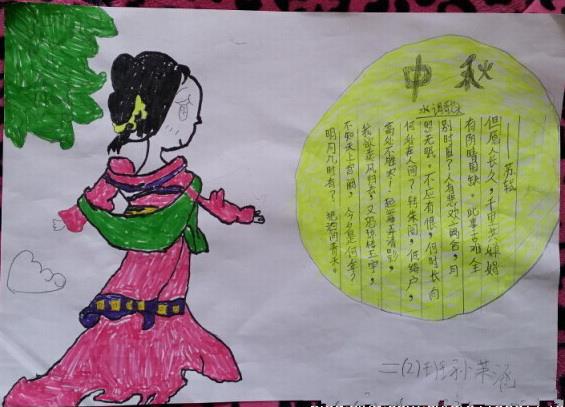 中秋
水调歌
明月几时有？把酒问青天。
不知天上宫阙，今夕是何年？
我欲乘风归去，又恐琼楼玉宇，
高处不胜寒！起舞弄清影，
何似在人间？转朱阁，低绮户，
照无眠。不应有恨，何时长向
别时圆？人有悲欢离合，月
有阴晴圆缺，此事古难全
但愿人长久，千里共婵娟
——苏轼
二(2)班孙